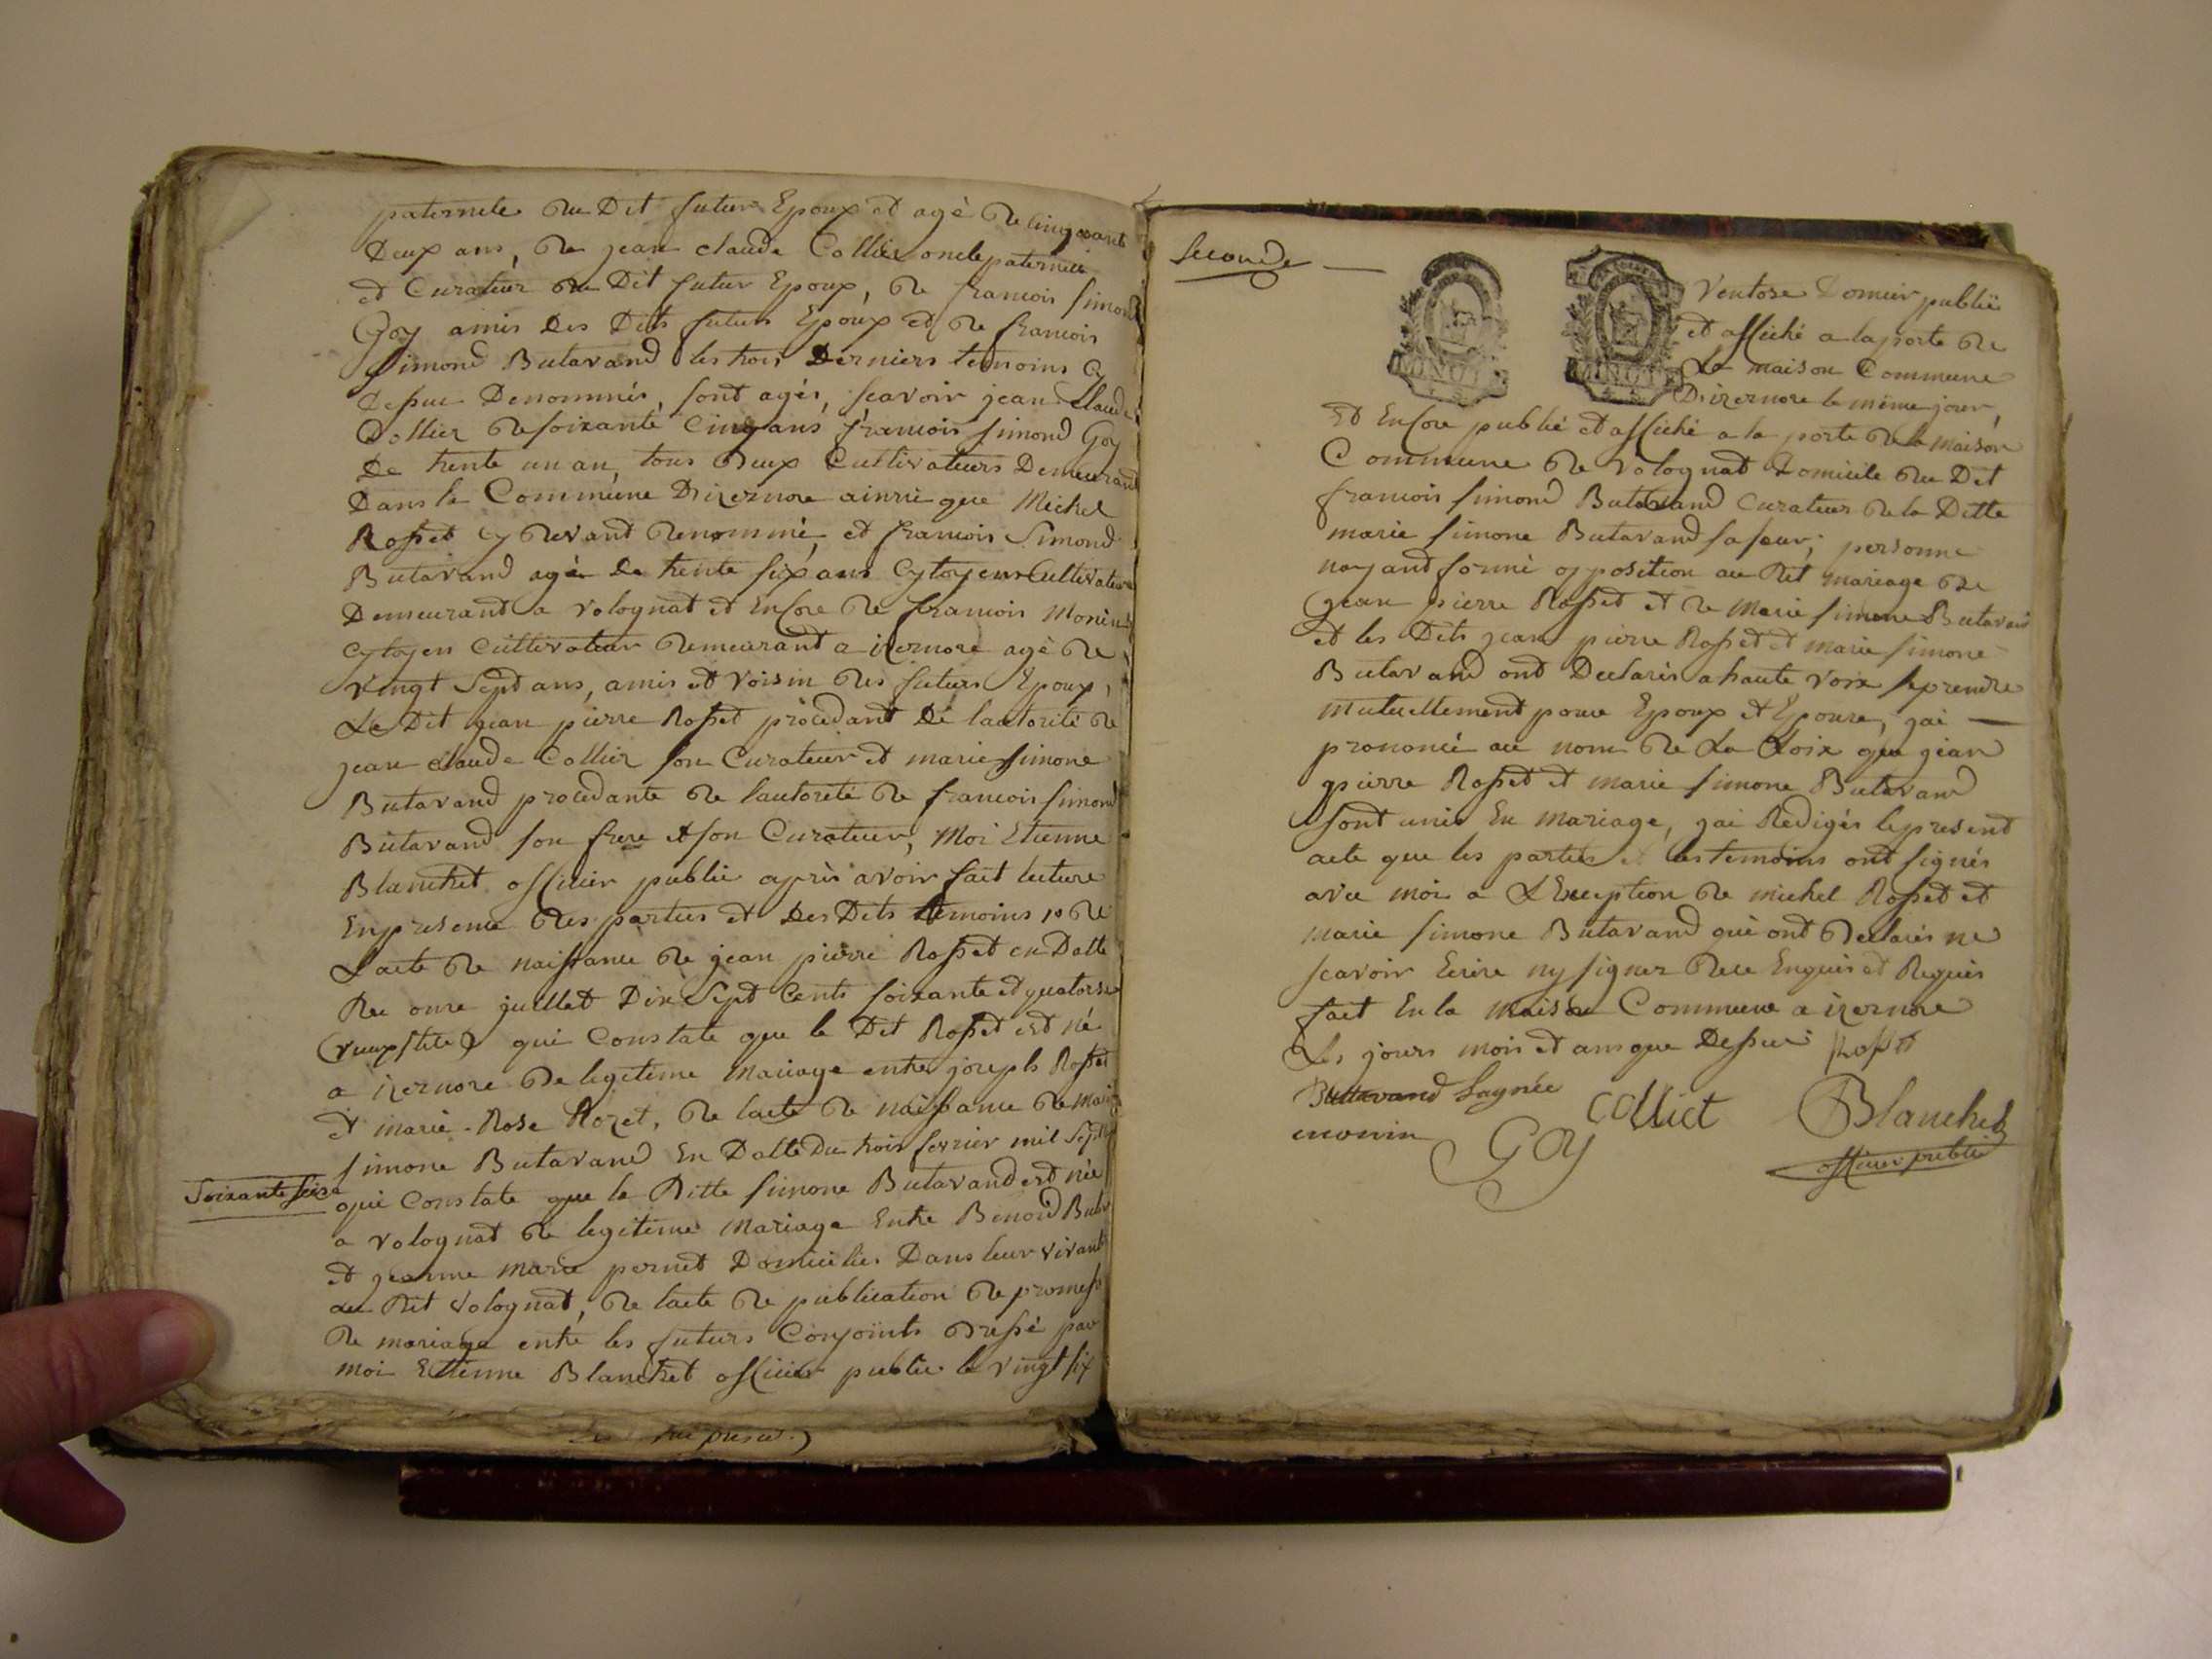 paternele du Dit futur Epoux et agé de cinquante
Deux ans, de jean claude Colliet oncle paternel
et Curateur du Dit futur Epoux, de francois simond
Goy amis des Dits futurs Epoux et de francois
simond Butavand les trois Derniers temoins cy
dessus Denommés, sont agés, scavoir jean Claude
Colliet de soixante Cinq ans francois simond Goy
De trente un an, tous deux Cultivateurs Demeurant
Dans la Commune Dizernore ainsi que Michel
Rosset cy devant denommé, et francois Simond
Butavand agé de trente six ans Cytoyens Cultivateurs
Demeurant a volognat et Encore de francois Monin
Cytoyen Cultivateur demeurant a izernore agé de
vingt Sept ans, amis et voisin des futurs Epoux,
Le Dit jean pierre Rosset procedant De lautorité de
jean claude Colliet son Curateur et marie simone
Butavand procedante de lautorité de francois simond
Butavand son frere et son Curateur, Moi Etienne
Blanchet officier public après avoir fait lecture
En presence des parties et Des Dits temoins 1° de
Lacte de naissance de jean pierre Rosset en Datte
Du onze juillet Dix Sept Cents soixante et quatorze
(vieux stile) qui Constate que le Dit Rosset est né
a izernore de legitime Mariage entre joseph Rosset
et marie-Rose Rozet, de lacte de naissance de Marie
simone Butavand En Datte Du trois fevrier mil Sept
Soixante seize
qui Constate que la Ditte simone Butavand est née
a volognat de legitime Mariage Entre Benoid
et jeanne marie pernet Domiciliés Dans leur vivant
au Dit volognat, de lacte de publication de promesse
de mariage entre les futurs Conjoints dressé par
moi Etienne Blanchet officier public le vingt six
Seconde
MINUTE
MINUTE
Ventose Dernier publié
et affiché a la porte de
La maison Commune
Dizernore le même jour,
Et Encore publié et affiché a la porte de la maison
Commune de volognat Domicile du Dit
francois simond Butavand Curateur de la Ditte
marie simone Butavand sa seur; personne
nayand formé opposition au Dit mariage de
jean pierre Rosset et de Marie simone Butavand
et les Dits jean pierre Rosset et marie simone
Butavand ont Declarés a haute voix se prendre
Mutuellement pour Epoux et Epouse, jai
prononcé au nom de La Loix que jean
pierre Rosset et marie simone Butavand
sont unis En Mariage, jai Redigés le present
acte que les parties et les temoins ont signés
avec moi a LException de michel Rosset et
marie simone Butavand qui ont declarés ne
scavoir Ecrire ny signer de ce Enquis et Requis
fait En la maison Commune a izernore
Les jours mois et ans que Dessus Rosset
Butavand
monin Goy Colliet Blanchet
officier public